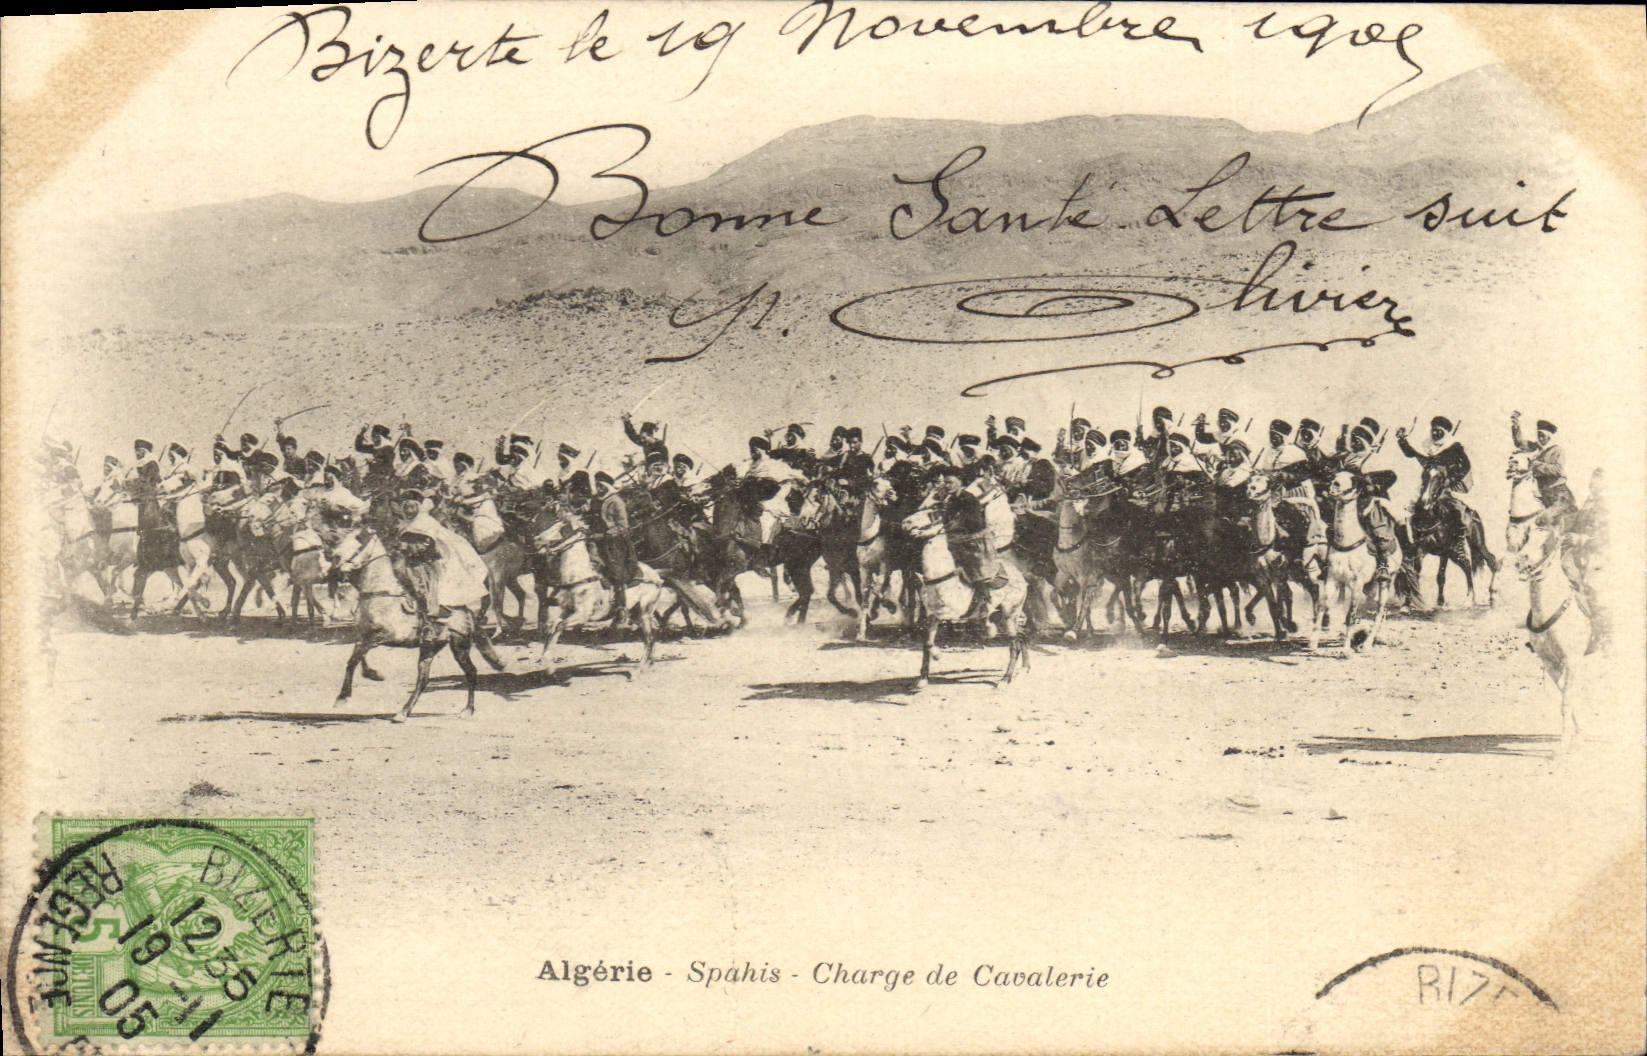 Bizerte le 19 Novembre 1905
Bonne Santé Lettre suit
Olivier
Algérie - Spahis - Charge de Cavalerie
BIZERTE
12 35
19 -11
05
REGENCE
5
BIZE